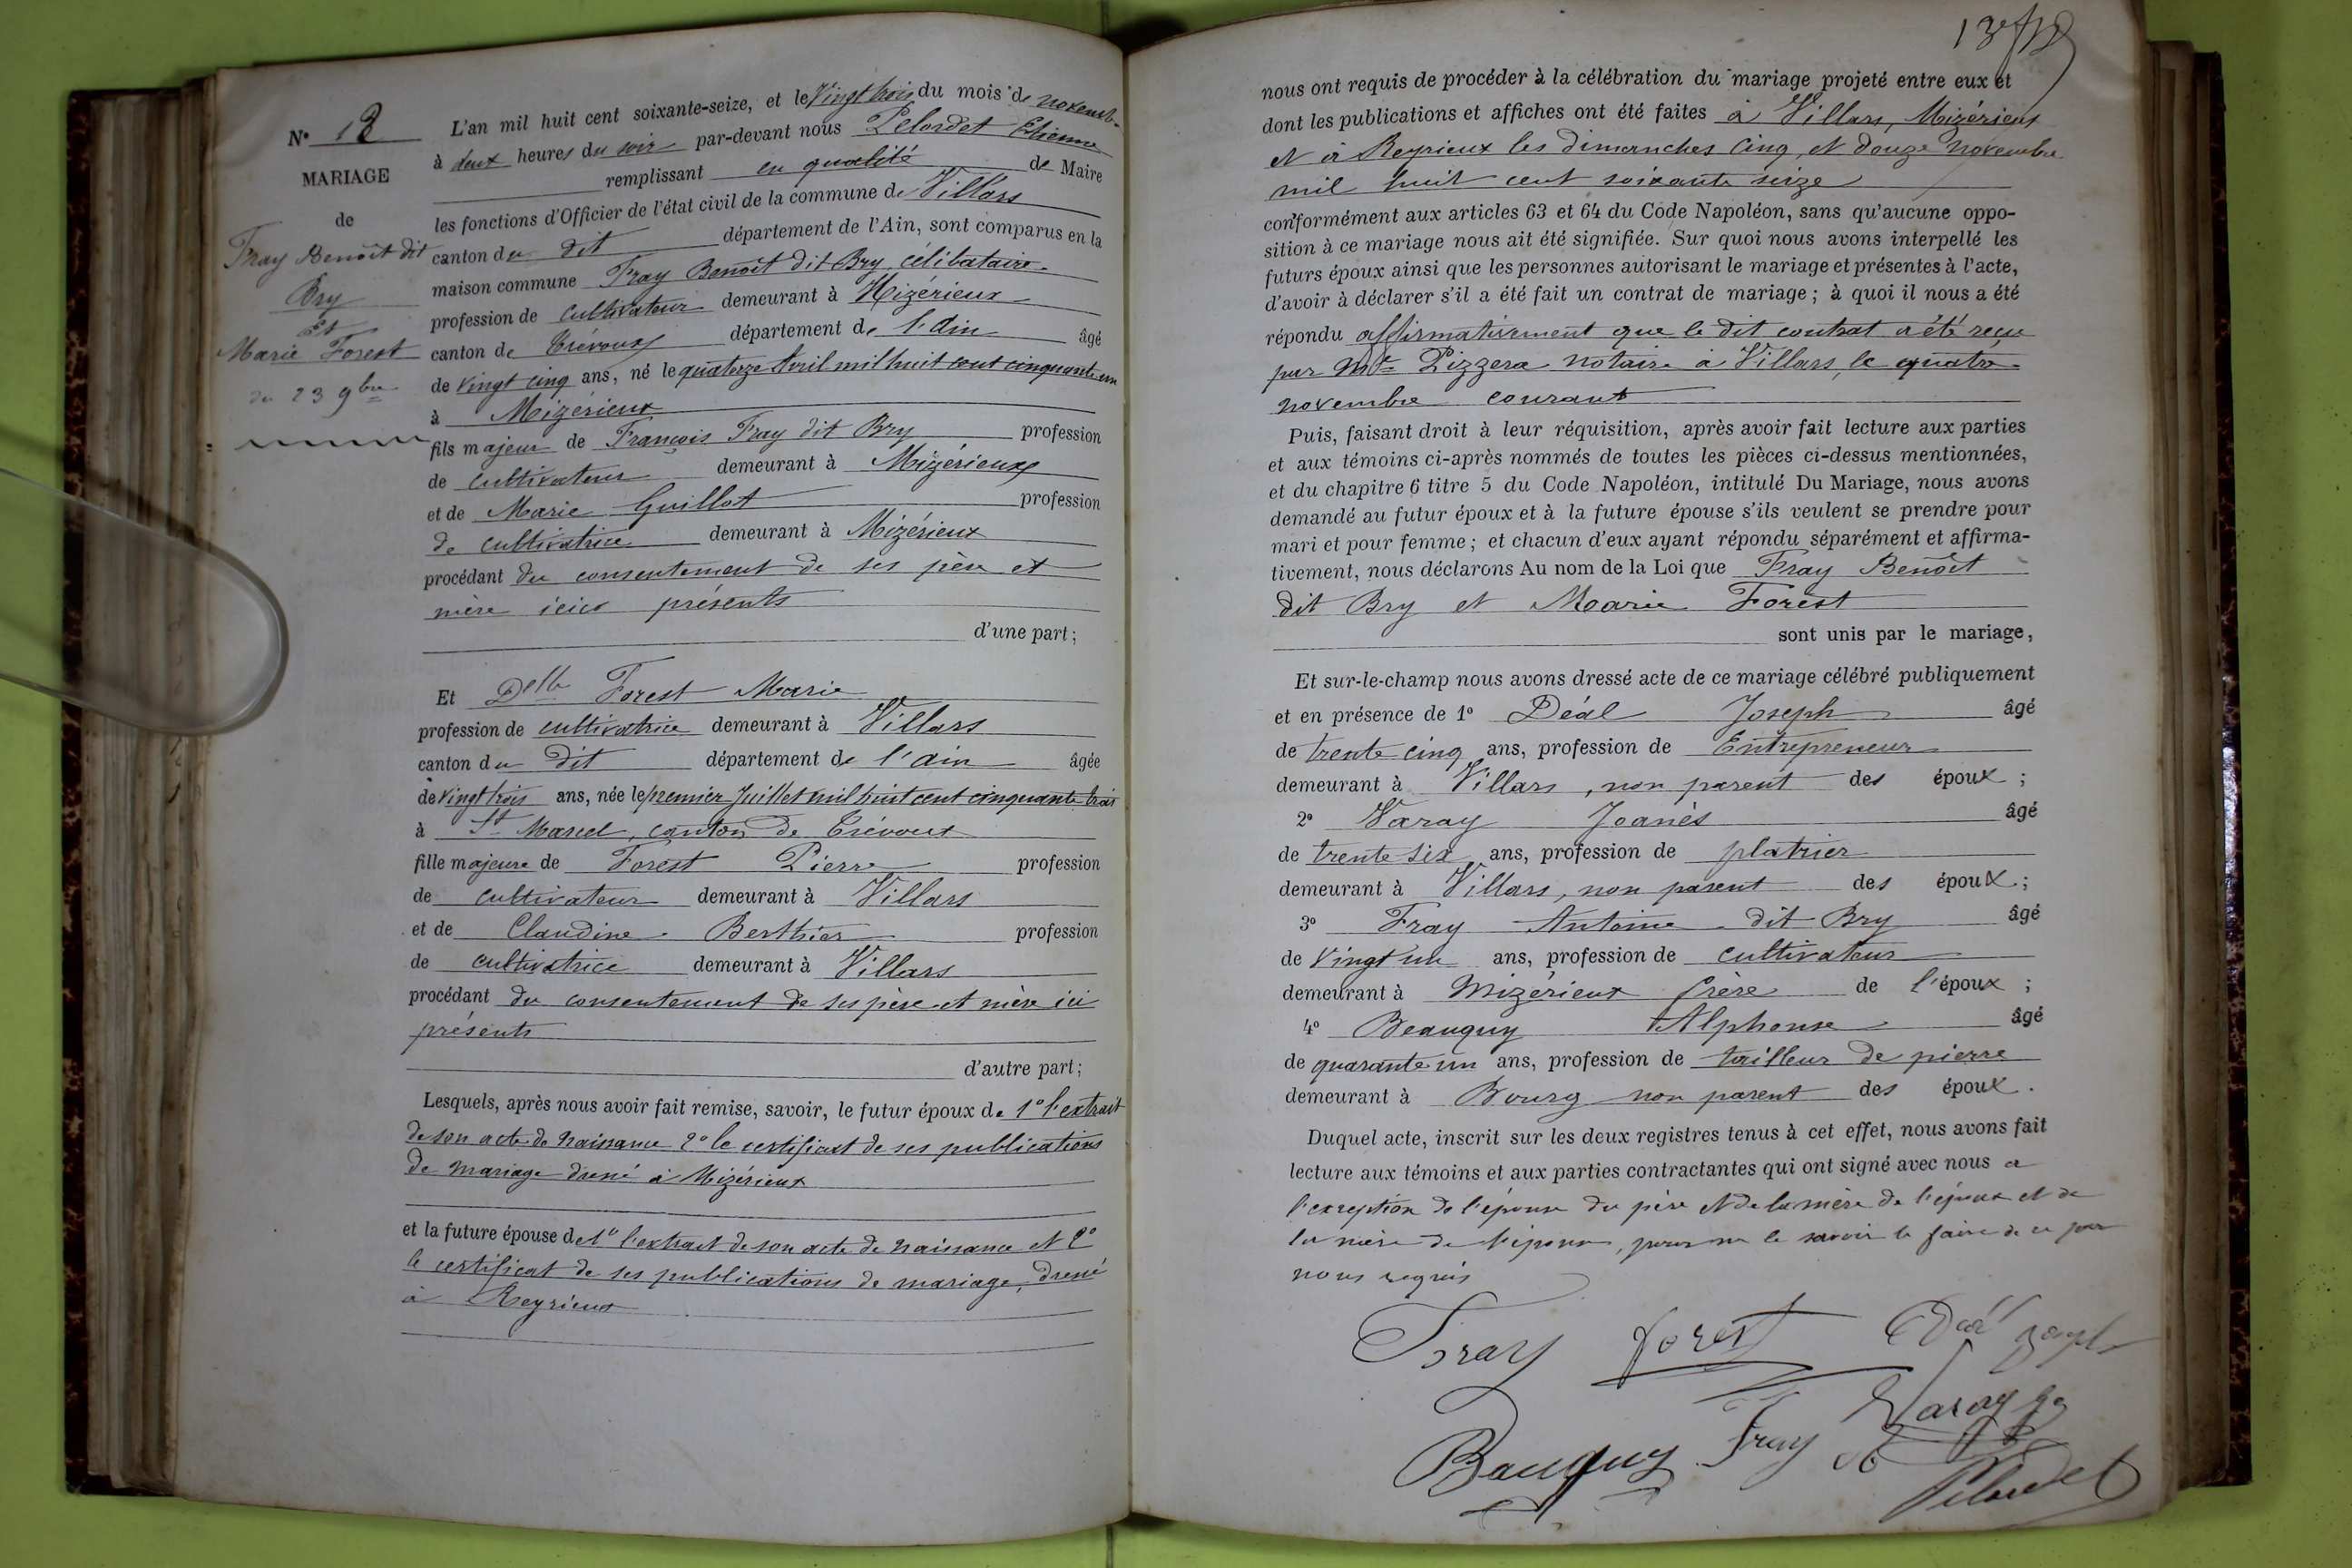 N° 12
MARIAGE
de
Fray Benoît dit
Bry
et
Marie Forest
du 23 9bre
L'an mil huit cent soixante-seize, et le Vingt trois du mois de novemb-
à deux heures du soir par-devant nous Pelordet Etienne
remplissant en qualité de Maire
les fonctions d'Officier de l'état civil de la commune de Villars
canton du dit département de l'Ain, sont comparus en la
maison commune Fray Benoît dit Bry célibataire
profession de cultivateur demeurant à Mizérieux
canton de Trévoux département de l'Ain âgé
de vingt cinq ans, né le quatorze Avril mil huit cent cinquante un
à Mizérieux
fils majeur de François Fray dit Bry profession
de cultivateur demeurant à Mizérieux
et de Marie Guillot profession
de cultivatrice demeurant à Mizérieux
procédant du consentement de ses père et
mère ici présents
d'une part;
Et Delle Forest Marie
profession de cultivatrice demeurant à Villars
canton du dit département de l'ain âgée
de vingt trois ans, née le premier Juillet mil huit cent cinquante trois
à St Marcel, canton de Trévoux
fille majeure de Forest Pierre profession
de cultivateur demeurant à Villars
et de Claudine Berthier profession
de cultivatrice demeurant à Villars
procédant du consentement de ses père et mère ici
présents
d'autre part;
Lesquels, après nous avoir fait remise, savoir, le futur époux de 1° l'extrait
de son acte de naissance 2° le certificat de ses publications
de mariage dressé à Mizérieux
et la future épouse de 1° l'extrait de son acte de naissance et 2°
le certificat de ses publications de mariage, dressé
à Reyrieux
nous ont requis de procéder à la célébration du mariage projeté entre eux et
dont les publications et affiches ont été faites à Villars, Mizérieux
et à Reyrieux les dimanches cinq et douze novembre
mil huit cent soixante seize
conformément aux articles 63 et 64 du Code Napoléon, sans qu'aucune oppo-
sition à ce mariage nous ait été signifiée. Sur quoi nous avons interpellé les
futurs époux ainsi que les personnes autorisant le mariage et présentes à l'acte,
d'avoir à déclarer s'il a été fait un contrat de mariage; à quoi il nous a été
répondu affirmativement que le dit contrat a été reçu
par Me Pizzera notaire à Villars, le quatre
novembre courant
Puis, faisant droit à leur réquisition, après avoir fait lecture aux parties
et aux témoins ci-après nommés de toutes les pièces ci-dessus mentionnées,
et du chapitre 6 titre 5 du Code Napoléon, intitulé Du Mariage, nous avons
demandé au futur époux et à la future épouse s'ils veulent se prendre pour
mari et pour femme; et chacun d'eux ayant répondu séparément et affirma-
tivement, nous déclarons Au nom de la Loi que Fray Benoît
dit Bry et Marie Forest
sont unis par le mariage,
Et sur-le-champ nous avons dressé acte de ce mariage célébré publiquement
et en présence de 1° Déal Joseph âgé
de trente cinq ans, profession de Entrepreneur
demeurant à Villars, non parent des époux;
2° Varay Joanès âgé
de trente six ans, profession de platrier
demeurant à Villars, non parent des époux;
3° Fray Antoine dit Bry âgé
de vingt un ans, profession de cultivateur
demeurant à Mizérieux frère de l'époux;
4° Beauguy Alphonse âgé
de quarante un ans, profession de tailleur de pierre
demeurant à Bourg non parent des époux.
Duquel acte, inscrit sur les deux registres tenus à cet effet, nous avons fait
lecture aux témoins et aux parties contractantes qui ont signé avec nous a
l'exception de l'épouse du père et de la mère de l'époux et de
la mère de l'épouse, pour ne le savoir le faire de ce par
nous requis
Fray Forest Déal Joseph
Varay
Bauguy Fray
Pelordet